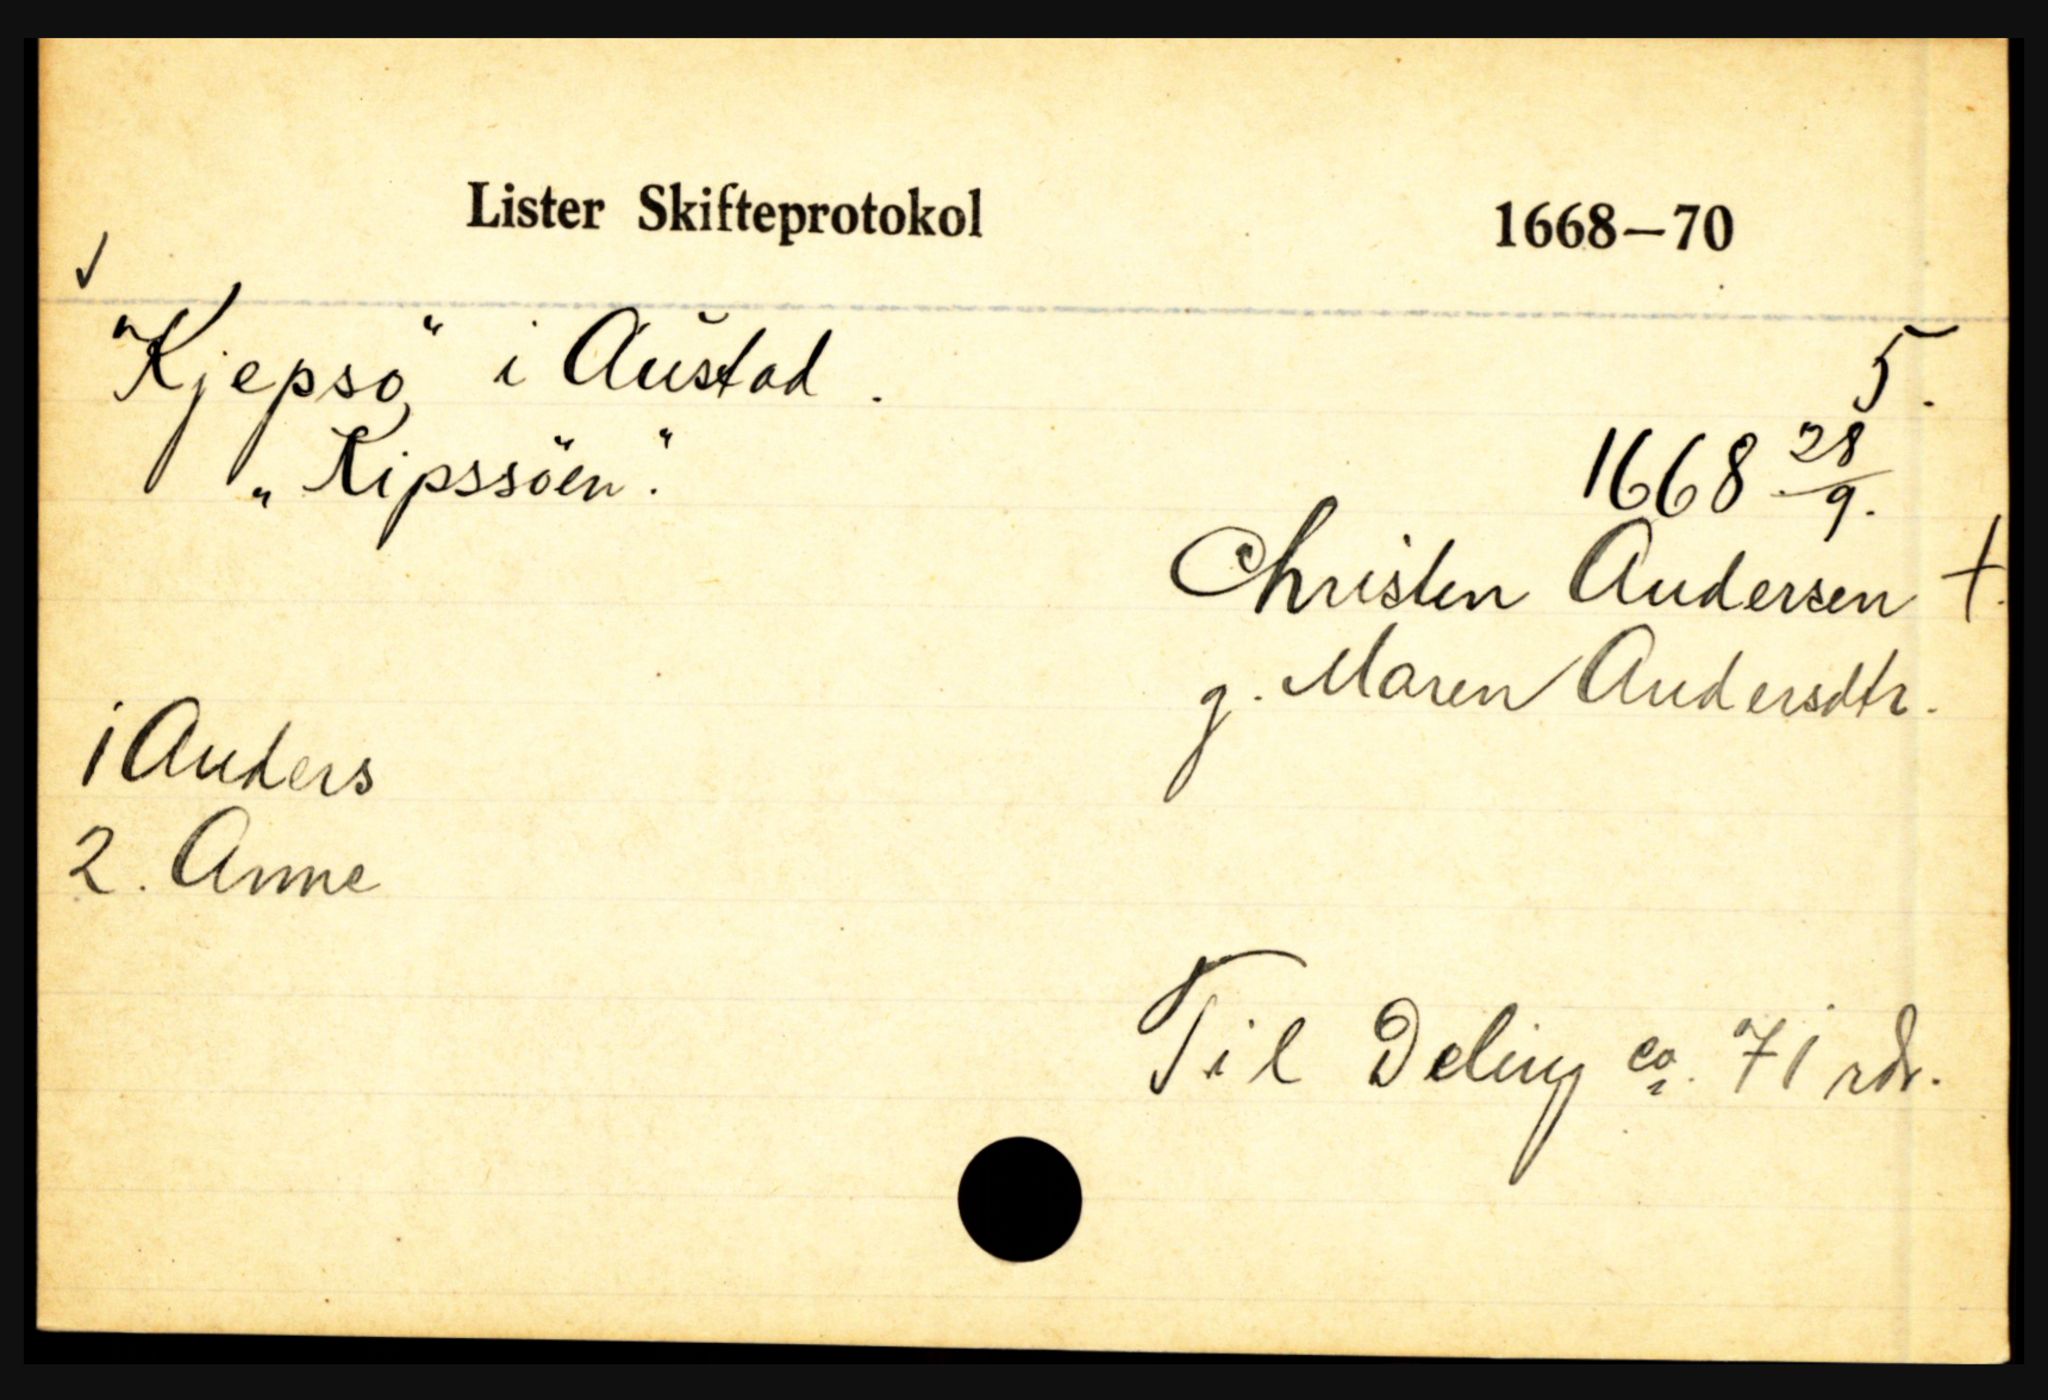 Lister Skifteprotokol 1668—70
✓
"Kjepsø" i Austad . 5.
„Kipssöen". 1668 28/9.
Christen Andersen †.
g. Maren Andersdtr.
1 Anders
2. Anne
Til Deling ca. 71 rdr.